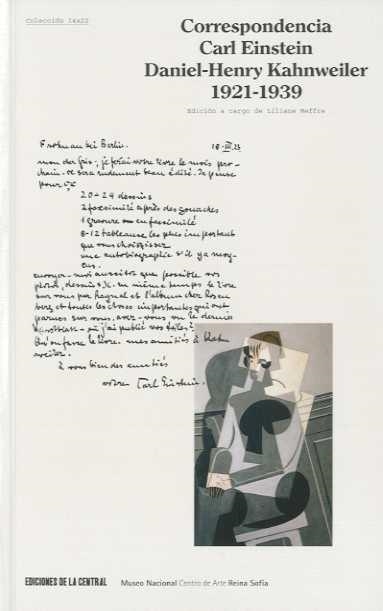 Colección 14x22
Correspondencia
Carl Einstein
Daniel-Henry Kahnweiler
1921-1939
Edición a cargo de Liliane Meffre
Frohnau bei Berlin. 18-III 23
mon cher Gris, je ferai votre livre le mois pro-
chain. ce sera rudement beau édité. Je pense
pour
20-24 dessins
2 facsimilé après des gouaches
1 gravure en facsimilé
8-12 tableaux les plus important
que vous choisissez
une autobiographie s'il y a moy-
en.
envoyez-moi aussitôt que possible vos
photos, dessins etc. en même temps le livre
sur vous par Raynal et l'album chez Rosen
berg et toutes les choses importantes qui ont
parues sur vous. avez-vous vu le dernier
où j'ai publié vos toiles?
faire le livre. mes amitiés à
à vous bien des amitiés
votre Carl Einstein.
EDICIONES DE LA CENTRAL
Museo Nacional Centro de Arte Reina Sofía